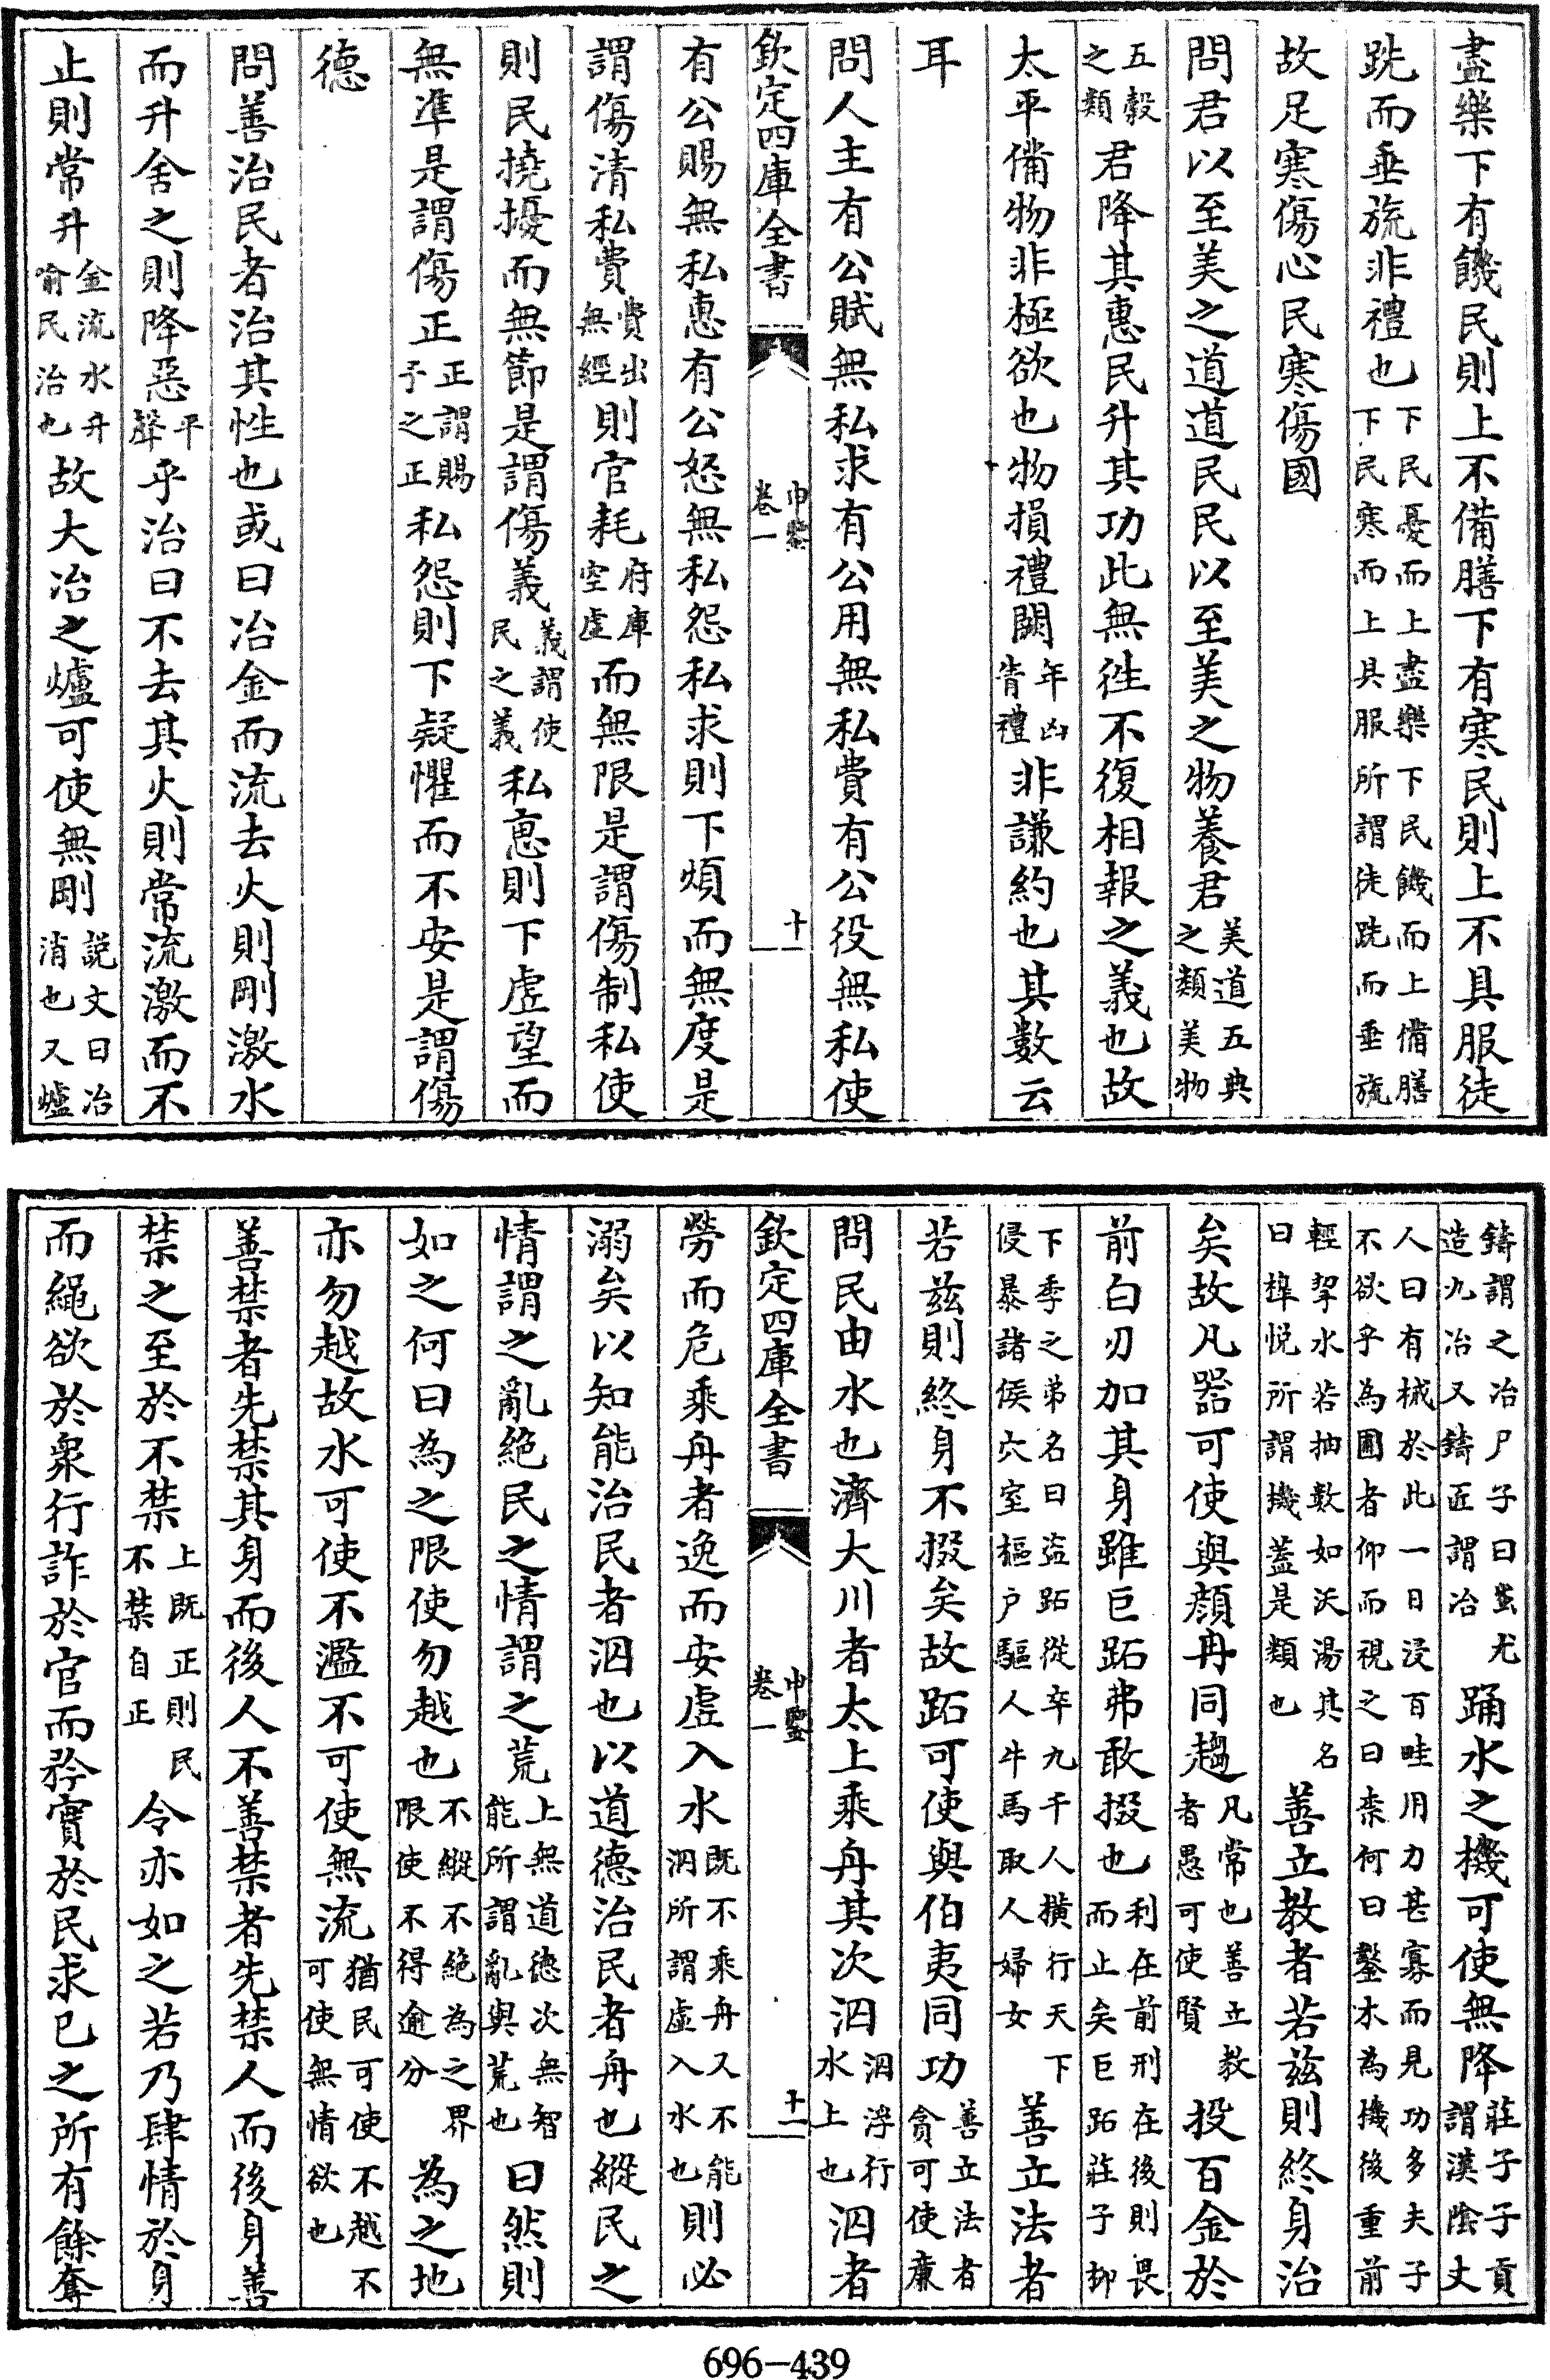 盡樂下有饑民則上不備膳下有寒民則上不具服徒
跣而垂旒非禮也下民憂而上盡樂下民饑而上備膳下民寒而上具服所謂徒跣而垂旒
故足寒傷心民寒傷國
問君以至美之道道民民以至美之物養君美道五典之類美物
五穀之類君降其惠民升其功此無徃不復相報之義也故
太平備物非極欲也物損禮闕年凶眚禮非謙約也其數云
耳
問人主有公賦無私求有公用無私費有公役無私使
欽定四庫全書
申鑒
卷一
十
有公賜無私惠有公怒無私怨私求則下煩而無度是
謂傷清私費費出無經則官耗府庫空虛而無限是謂傷制私使
則民撓擾而無節是謂傷義義謂使民之義私惠則下虛望而
無凖是謂傷正正謂賜予之正私怨則下疑懼而不安是謂傷
德
問善治民者治其性也或曰冶金而流去火則剛激水
而升舍之則降惡平聲乎治曰不去其火則常流激而不
止則常升金流水升喻民治也故大冶之爐可使無剛説文曰冶消也又爐
鑄謂之冶尸子曰蚩尤造九冶又鑄匠謂冶踊水之機可使無降莊子子貢謂漢陰丈
人曰有械於此一日浸百畦用力甚寡而見功多夫子不欲乎為圃者仰而視之曰柰何曰鑿木為機後重前
輕挈水若抽數如沃湯其名曰槔悦所謂機蓋是類也善立教者若兹則終身治
矣故凡器可使與顔冉同趨凡常也善立教者愚可使賢投百金於
前白刃加其身雖巨跖弗敢掇也利在前刑在後則畏而止矣巨跖莊子柳
下季之弟名曰盜跖從卒九千人橫行天下侵暴諸侯穴室樞户驅人牛馬取人婦女善立法者
若兹則終身不掇矣故跖可使與伯夷同功善立法者貪可使亷
問民由水也濟大川者太上乘舟其次泅泅浮行水上也泅者
欽定四庫全書
申鑒
卷一
十一
勞而危乘舟者逸而安虛入水既不乘舟又不能泅所謂虛入水也則必
溺矣以知能治民者泅也以道德治民者舟也縱民之
情謂之亂絶民之情謂之荒上無道德次無智能所謂亂與荒也曰然則
如之何曰為之限使勿越也不縱不絶為之界限使不得逾分為之地
亦勿越故水可使不濫不可使無流猶民可使不越不可使無情欲也
善禁者先禁其身而後人不善禁者先禁人而後身善
禁之至於不禁上既正則民不禁自正令亦如之若乃肆情於身
而繩欲於衆行詐於官而矜實於民求已之所有餘奪
696-439